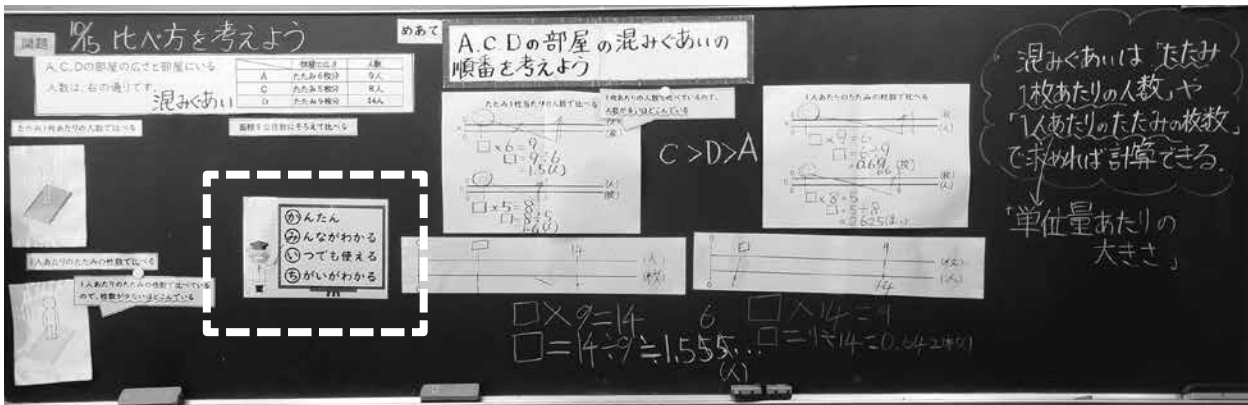 問題
10/15 比べ方を考えよう
A、C、Dの部屋の広さと部屋にいる
人数は、右の通りです。
混みぐあい
部屋の広さ 人数
A たたみ6枚分 9人
C たたみ5枚分 8人
D たたみ9枚分 14人
たたみ1枚あたりの人数で比べる
面積を公倍数にそろえて比べる
1人あたりのたたみの枚数で比べる
1人あたりのたたみの枚数で比べている
ので、枚数が少ないほどこんでいる
かんたん
みんながわかる
いつでも使える
ちがいがわかる
めあて
A.C.Dの部屋の混みぐあいの
順番を考えよう
たたみ1枚当たりの人数で比べる
1枚あたりの人数で比べているので、
人数が多いほどこんでいる
□×6=9
□=9÷6
=1.5(人)
□×5=8
□=8÷5
=1.6(人)
□ 14
(人)
□×9=14
□=14÷9≒1.555…
(人)
C>D>A
1人あたりのたたみの枚数で比べる
□×9=6
□=6÷9
□×8=5
□=5÷8
=0.625(まい)
□ 9
14
□×14=9
混みぐあいは「たたみ
1枚あたりの人数」や
「1人あたりのたたみの枚数」
で求めれば計算できる。
「単位量あたりの
大きさ」